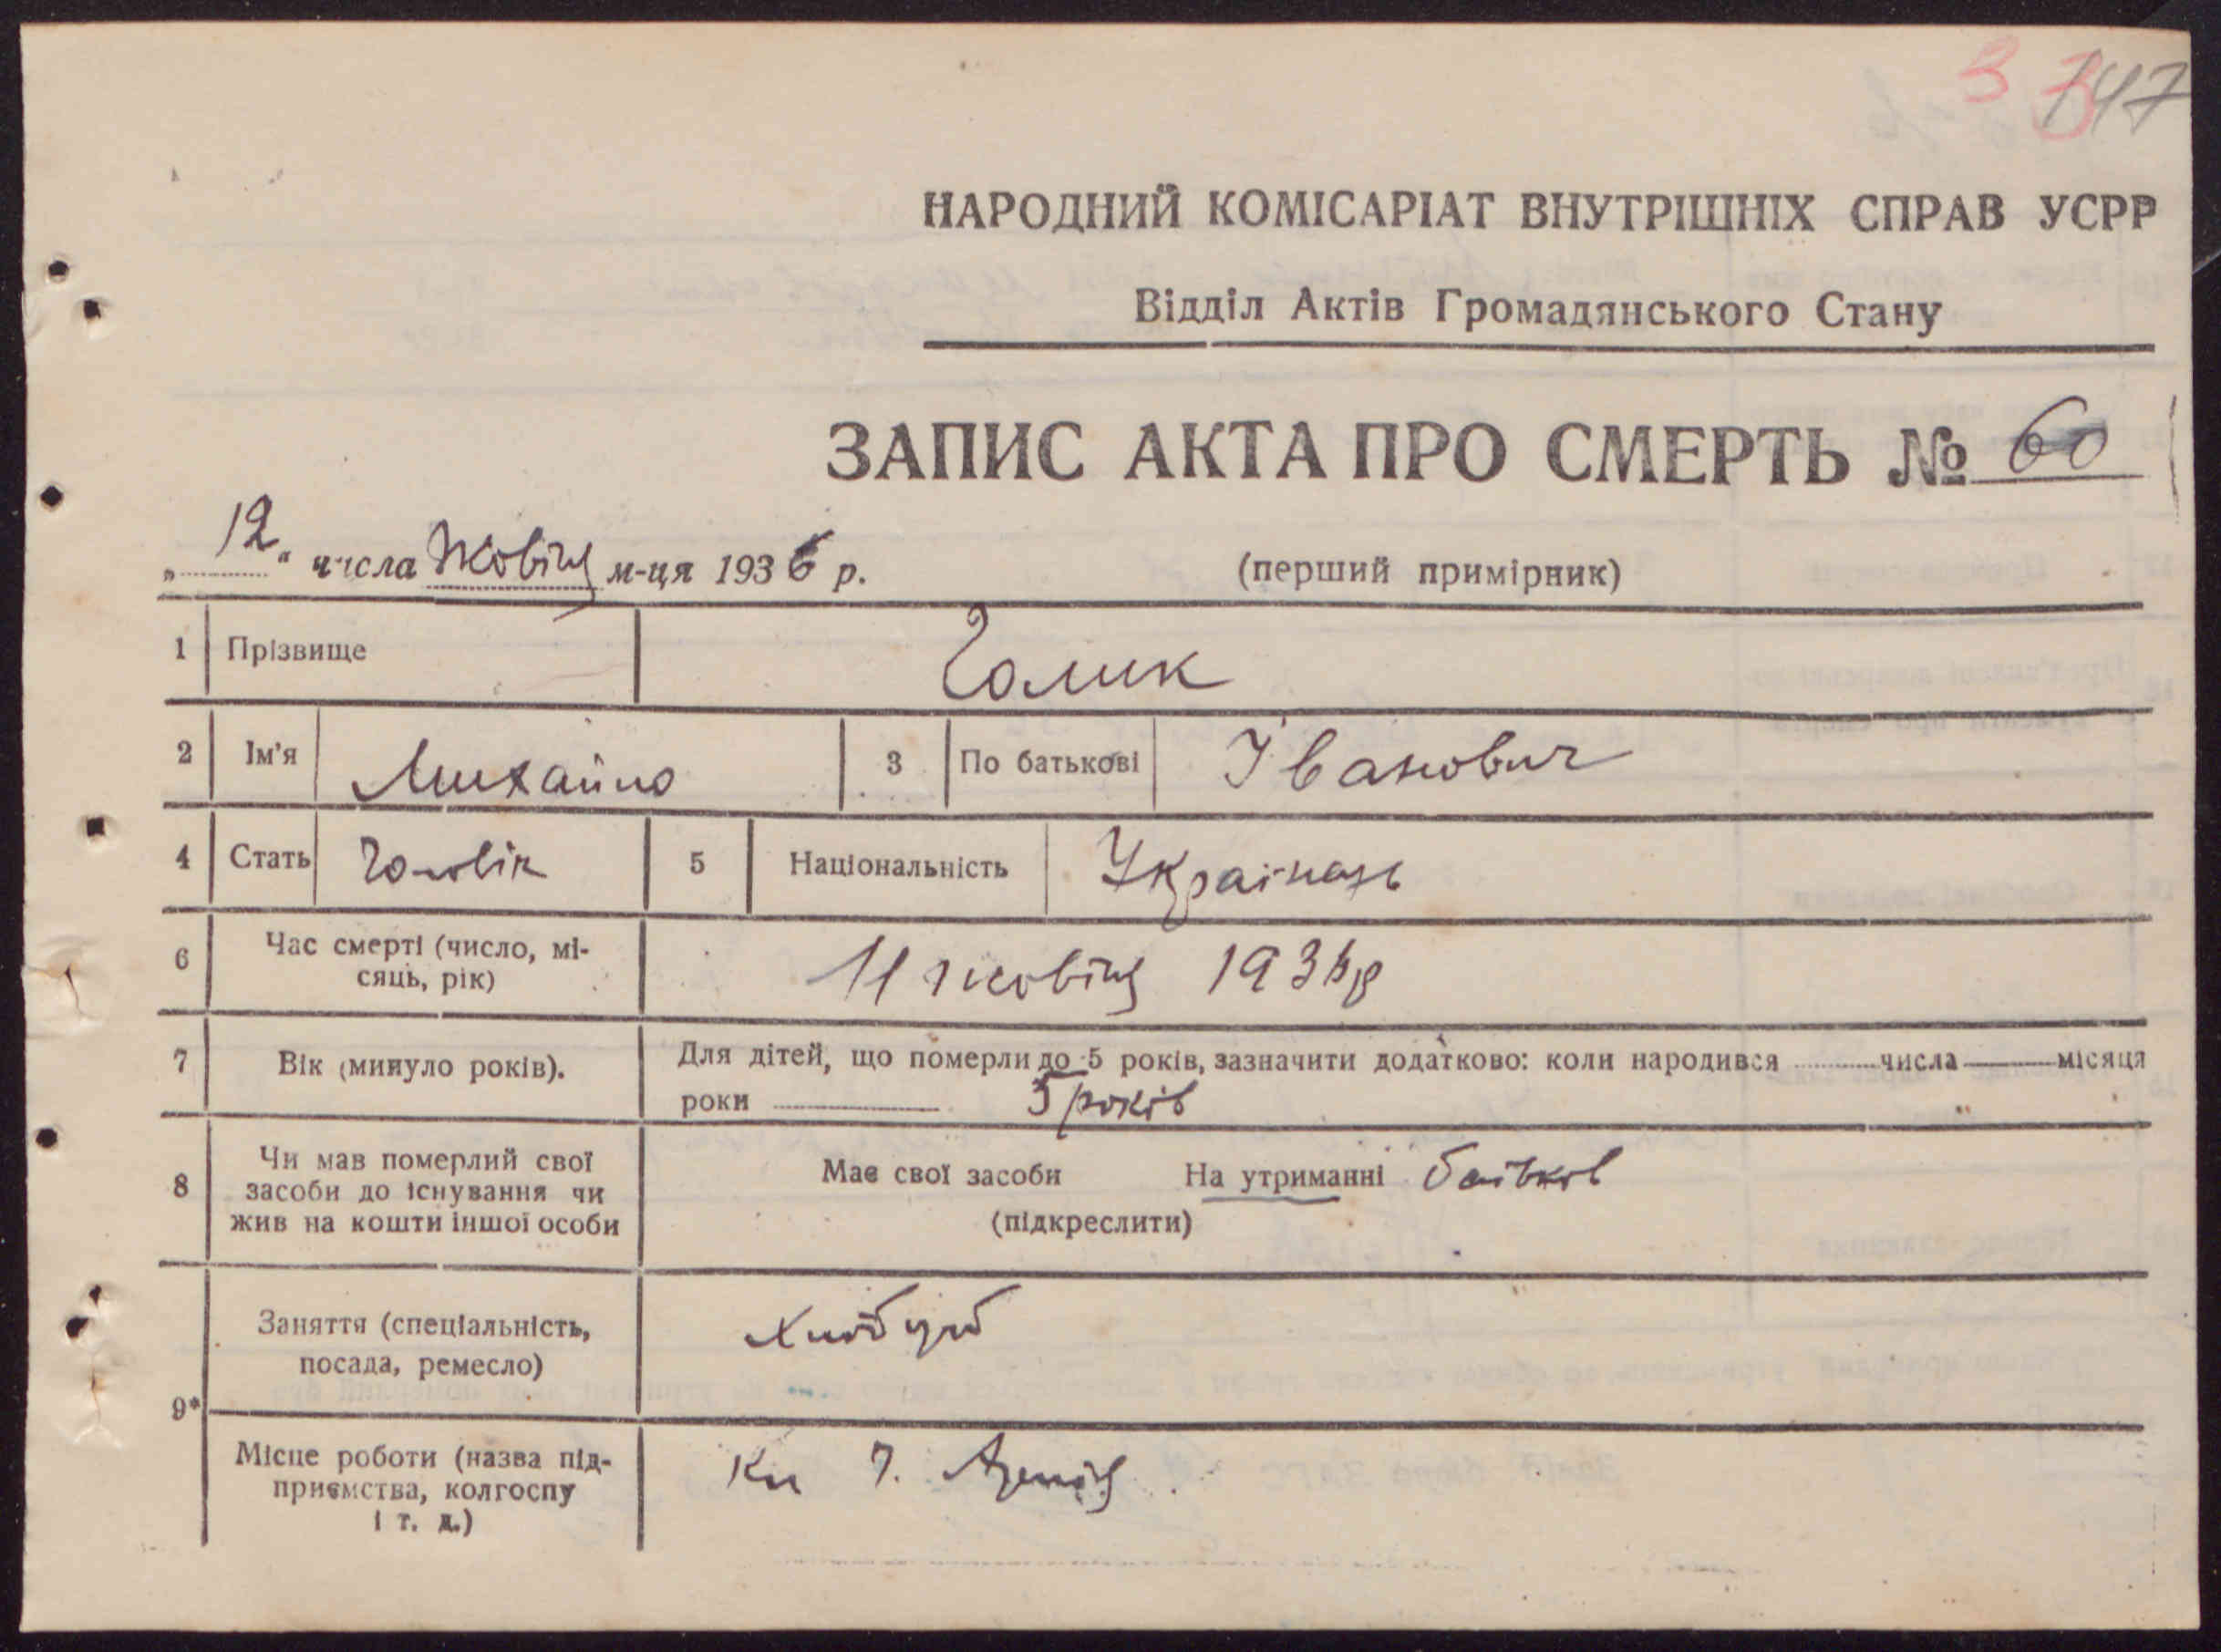 3 3 147
НАРОДНИЙ КОМІСАРІАТ ВНУТРІШНІХ СПРАВ УСРР
Відділ Актів Громадянського Стану
ЗАПИС АКТА ПРО СМЕРТЬ № 60
„12“ числа Жовтня м-ця 1936 р.
(перший примірник)
1 Прізвище Голик
2 Ім'я Михайло 3 По батькові Іванович
4 Стать Чоловік 5 Національність Українець
6 Час смерті (число, мі-
сяць, рік) 11 жовтня 1936р
7 Вік (минуло років). Для дітей, що померли до 5 років, зазначити додатково: коли народився числа місяця
роки 5 років
8 Чи мав померлий свої
засоби до існування чи
жив на кошти іншої особи
Має свої засоби На утриманні батьків
(підкреслити)
9* Заняття (спеціальність,
посада, ремесло) Хлібороб
Місце роботи (назва під-
приємства, колгоспу
і т. д.)